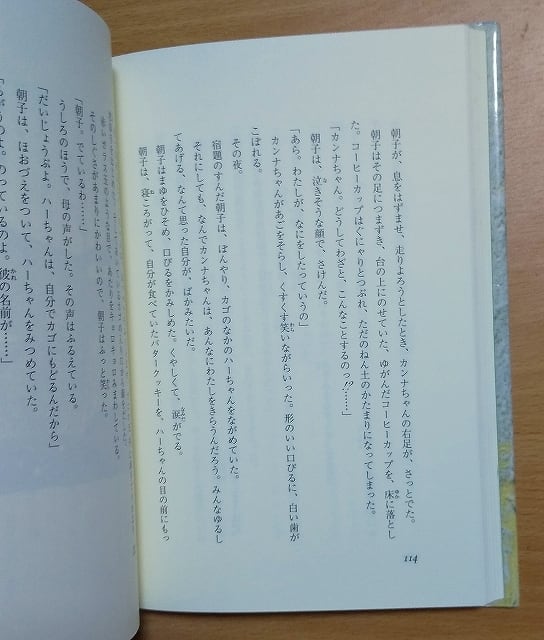 朝子が、息をはずませ、走りよろうとしたとき、カンナちゃんの右足が、さっとでた。
朝子はその足につまずき、台の上にのせていた、ゆがんだコーヒーカップを、床に落とし
た。コーヒーカップはぐにゃりとつぶれ、ただのねん土のかたまりになってしまった。
「カンナちゃん。どうしてわざと、こんなことするのっ!?……」
朝子は、泣きそうな顔で、さけんだ。
「あら。わたしが、なにをしたっていうの」
カンナちゃんがあごをそらし、くすくす笑いながらいった。形のいい口びるに、白い歯が
こぼれる。
その夜。
宿題のすんだ朝子は、ぼんやり、カゴのなかのハーちゃんをながめていた。
それにしても、なんでカンナちゃんは、あんなにわたしをきらうんだろう。みんなゆるし
てあげる、なんて思った自分が、ばかみたいだ。
朝子はまゆをひそめ、口びるをかみしめた。くやしくて、涙がでる。
朝子は、寝ころがって、自分が食べていたバタークッキーを、ハーちゃんの目の前にもっ
114
赤いガラス玉のような目で、あたりをキョロキョロみまわしている。
そのしぐさがあまりにかわいいので、朝子はふっと笑った。
「朝子。でているわ……」
うしろのほうで、母の声がした。その声はふるえている。
「だいじょうぶよ。ハーちゃんは、自分でカゴにもどるんだから」
朝子は、ほおづえをついて、ハーちゃんをみつめていた。
のっているのよ。彼の名前が……」